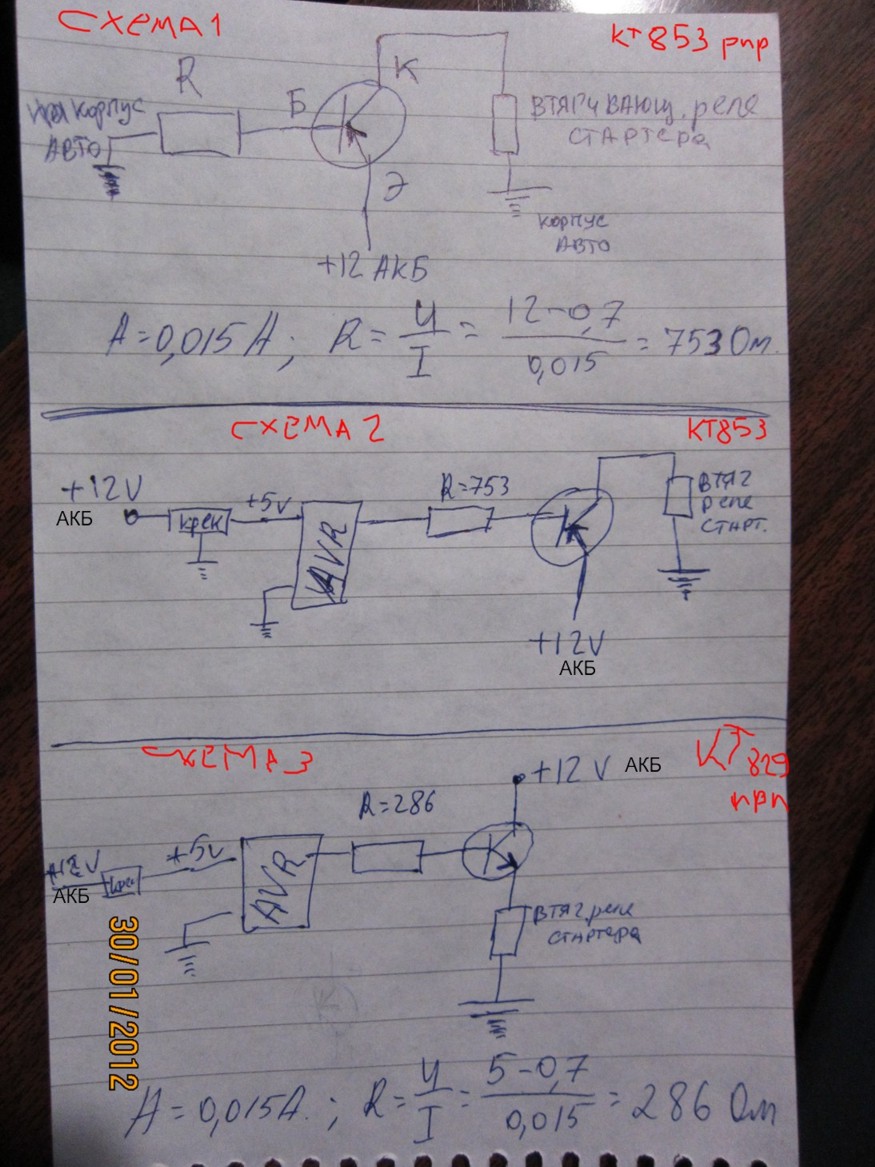 СХЕМА 1
КТ853 pnp
R
К
Б
корпус
АВТО
ВТЯГИВАЮЩ. реле
СТАРТЕРА
Э
корпус
АВТО
+12 АКБ
A=0,015A; R = U/I = 12-0,7/0,015 = 753 Ом.
СХЕМА 2
КТ853
+12V
АКБ
крен
+5v
AVR
R=753
ВТЯГ
реле
СТАРТ.
+12V
АКБ
СХЕМА 3
КТ829
npn
+12V АКБ
R=286
+12V
АКБ
крен
+5v
AVR
ВТЯГ реле
стартера
30/01/2012
A=0,015A.; R = U/I = 5-0,7/0,015 = 286 Ом